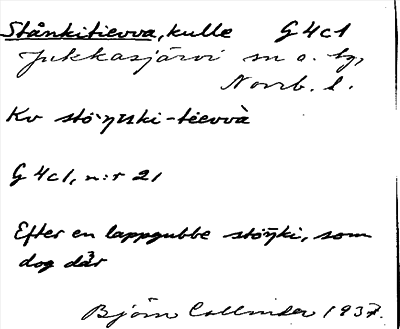 Stånkitievva, kulle G4c1
Jukkasjärvi sn o. tg,
Norrb. l.
Kv stö·ŋki-tievvà
G 4c1, n:r 21
Efter en lappgubbe stöŋki, som
dog där
Björn Collinder 1937.